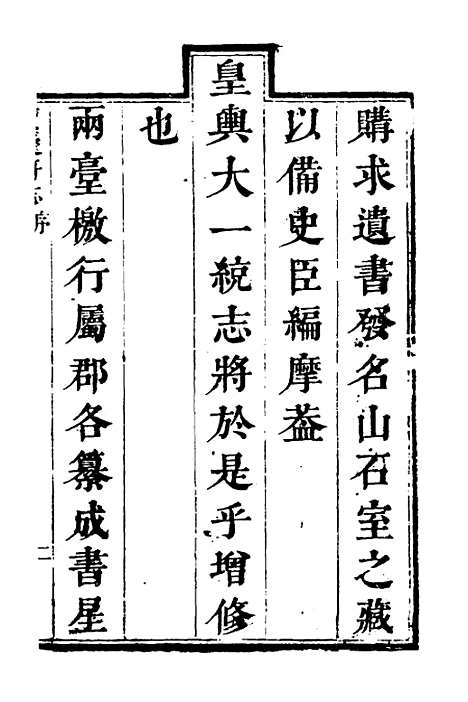 購求遺書發名山石室之藏
以備史臣編摩葢
皇輿大一統志將於是乎增修
也
兩臺檄行屬郡各纂成書星
二